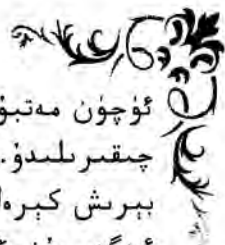 ئۈچۈن مەتبۇ
چىقىرىلىدۇ.
بېرىش كېرە